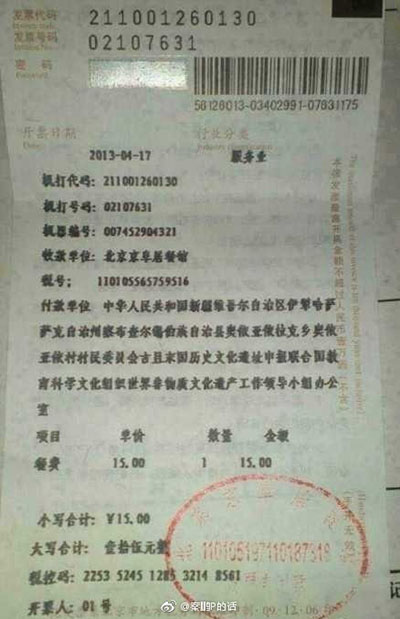 发票代码 211001260130
发票号码 02107631
密码
56126013-03402991-07631175
开票日期 行业分类
2013-04-17 服务业
机打代码：211001260130
机打号码：02107631
机器编号：007452904321
收款单位：北京京阜居餐馆
税号：110105565759516
付款单位：中华人民共和国新疆维吾尔自治区伊犁哈萨
萨克自治州察布查尔锡伯族自治县奥依亚依拉克乡奥依
亚依村村民委员会古且末国历史文化遗址申报联合国教
育科学文化组织世界非物质文化遗产工作领导小组办公
室
项目 单价 数量 金额
餐费 15.00 1 15.00
小写合计：¥15.00
大写合计：壹拾伍元整
税控码：2253 5245 1285 3214 8561
开票人：01号
110105197110187318